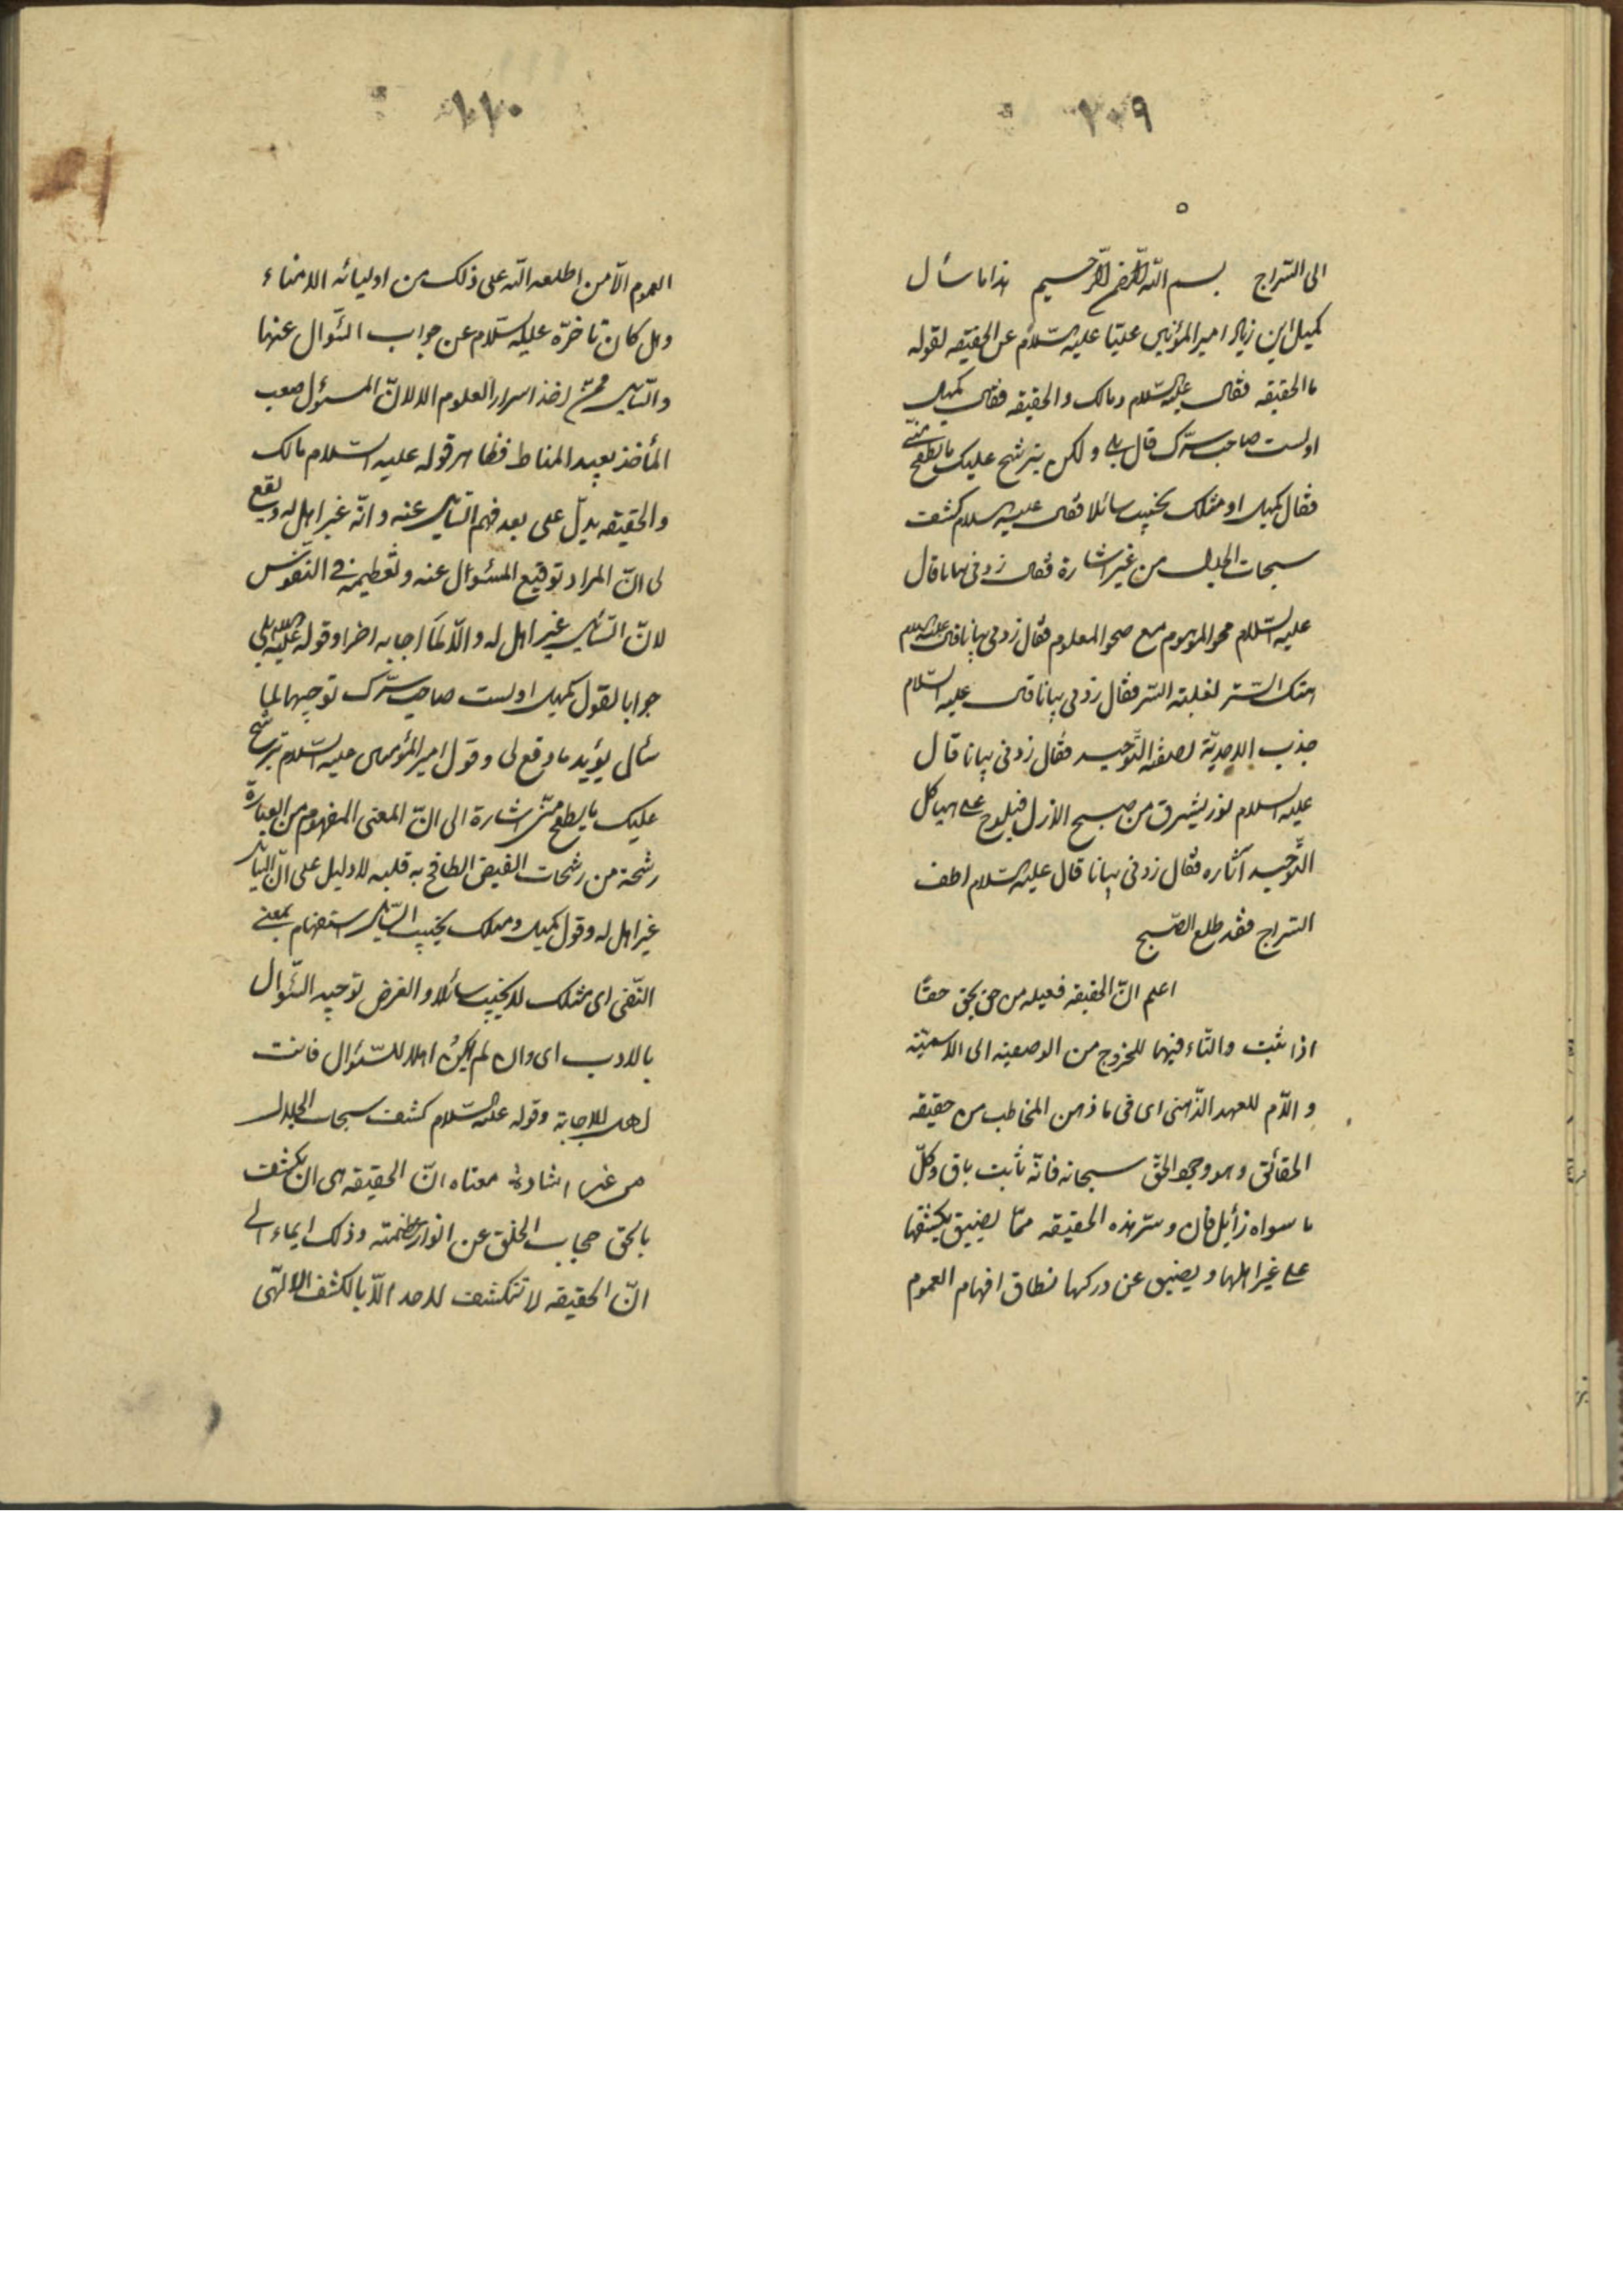 ١٠٩
الى السّراج بسم الله الرّحمن الرّحيم هذا ما سأل
كميل ابن زياد اميرالمؤمنين عليّا عليه السّلام عن الحقيقه لقوله
ما الحقيقه فقال عليه السّلام ومالك والحقيقه فقال كميل
اولست صاحب سرّك قال بلى ولكن يترشح عليك ما يطفح منّى
فقال كميل او مثلك يخيب سائلا فقال عليه السلام كشف
سبحات الجلال من غير اشارة فقال زدنى بيانا قال
عليه السّلام محو الموهوم مع صحو المعلوم فقال زدنى بيانا قال عليه السلام
هتك السّتر لغلبة السّر فقال زدنى بيانا قال عليه السّلام
جذب الاحديّة لصفة التّوحيد فقال زدنى بيانا قال
عليه السلام نور يشرق من صبح الازل فيلوح على هياكل
التّوحيد آثاره فقال زدنى بيانا قال عليه السّلام اطف
السّراج فقد طلع الصّبح
اعلم انّ الحقيقه فعيله من حق يحق حقّا
اذا ثبت والتّاء فيها للخروج من الوصفيه الى الاسميّه
و اللّام للعهد الذّهنى اى فى ما ذهن المخاطب من حقيقه
الحقائق وهو وجود الحقّ سبحانه فانّه ثابت باق وكلّ
ما سواه زائل فان و ستر هذه الحقيقه ممّا يضيق بكشفها
على غير اهلها و يضيق عن دركها نطاق افهام العموم
١١٠
العموم الّا من اطلعه الله على ذلك من اوليائه الامناء
وهل كان تاخرّه عليه السّلام عن جواب السّؤال عنها
والسّائل اخذ اسرار العلوم الا لانّ المسئول صعب
المأخذ بعيد المناط فظاهر قوله عليه السّلام مالك
والحقيقه يدلّ على بعد فهم السّائل عنه وانّه غير اهل له ويقع
لى انّ المراد توقيع المسئوال عنه وتعظيمه فى النّفوس
لانّ السّائل غير اهل له والّا لما اجابه اخرا وقوله عليه السلام بلى
جوابا لقول كميل اولست صاحب سرّك توجيها لما
سأل يؤيد ما وقع لى وقول اميرالمؤمنين عليه السّلام يترشح
عليك ما يطفح منّى اشارة الى انّ المعنى المفهوم من العبارة
رشحة من رشحات الفيض الطافح به قلبه لا دليل على انّ السّائل
غير اهل له وقول كميل ومثلك يخيب السّائل استفهام بمعنى
النّفى اى مثلك لا يخيب سائلا و الغرض توجيه السّؤال
بالادب اى وان لم اكن اهلا للسّؤال فانت
اهل للاجابة وقوله عليه السّلام كشف سبحات الجلال
من غير اشارة معناه انّ الحقيقه هى ان يكشف
بالحق حجاب الخلق عن انوار عظمته وذلك ايماء الى
انّ الحقيقه لا تنكشف لاحد الّا بالكشف الالهّى